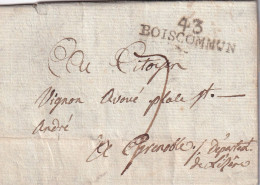 43
BOISCOMMUN
Au Citoyen
Vignon Avoué place St.
André
A Grenoble
Départmt
de L'isère